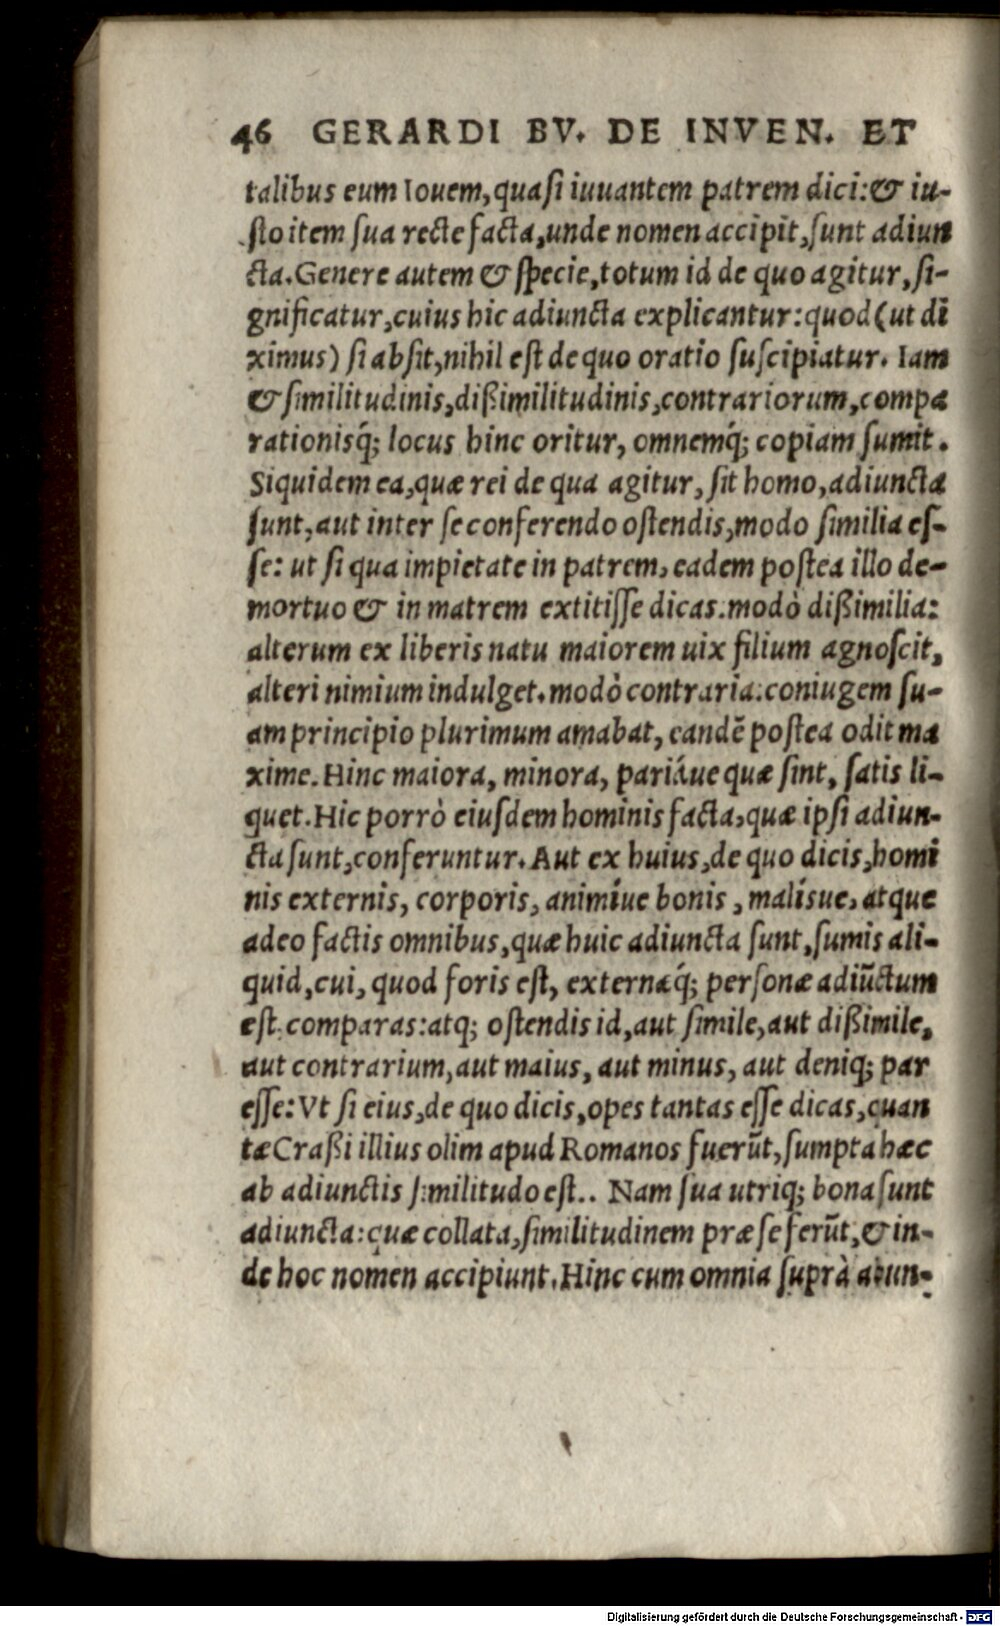 46 GERARDI BV. DE INVEN. ET
talibus eum Iouem, quasi iuuantem patrem dici: & iu-
sto item sua recte facta, unde nomen accipit, sunt adiun
cta. Genere autem & specie, totum id de quo agitur, si-
gnificatur, cuius hic adiuncta explicantur: quod (ut di
ximus) si absit, nihil est de quo oratio suscipiatur. Iam
& similitudinis, dißimilitudinis, contrariorum, compa
rationisq́; locus hinc oritur, omnemq́; copiam sumit.
Siquidem ea, quæ rei de qua agitur, sit homo, adiuncta
sunt, aut inter se conferendo ostendis, modo similia es-
se: ut si qua impietate in patrem, eadem postea illo de-
mortuo & in matrem extitisse dicas. modò dißimilia:
alterum ex liberis natu maiorem uix filium agnoscit,
alteri nimium indulget. modò contraria: coniugem su-
am principio plurimum amabat, eandẽ postea odit ma
xime. Hinc maiora, minora, pariáue quæ sint, satis li-
quet. Hic porrò eiusdem hominis facta, quæ ipsi adiun-
cta sunt, conferuntur. Aut ex huius, de quo dicis, homi
nis externis, corporis, animíue bonis, malísue, atque
adeo factis omnibus, quæ huic adiuncta sunt, sumis ali-
quid, cui, quod foris est, externæq́; personæ adiũctum
est. comparas: atq; ostendis id, aut simile, aut dißimile,
aut contrarium, aut maius, aut minus, aut deniq; par
esse: Vt si eius, de quo dicis, opes tantas esse dicas, quan
tæ Craßi illius olim apud Romanos fuerũt, sumpta hæc
ab adiunctis similitudo est.. Nam sua utriq; bona sunt
adiuncta: quæ collata, similitudinem præ se ferũt, & in-
de hoc nomen accipiunt. Hinc cum omnia suprà adiun-
Digitalisierung gefördert durch die Deutsche Forschungsgemeinschaft - DFG